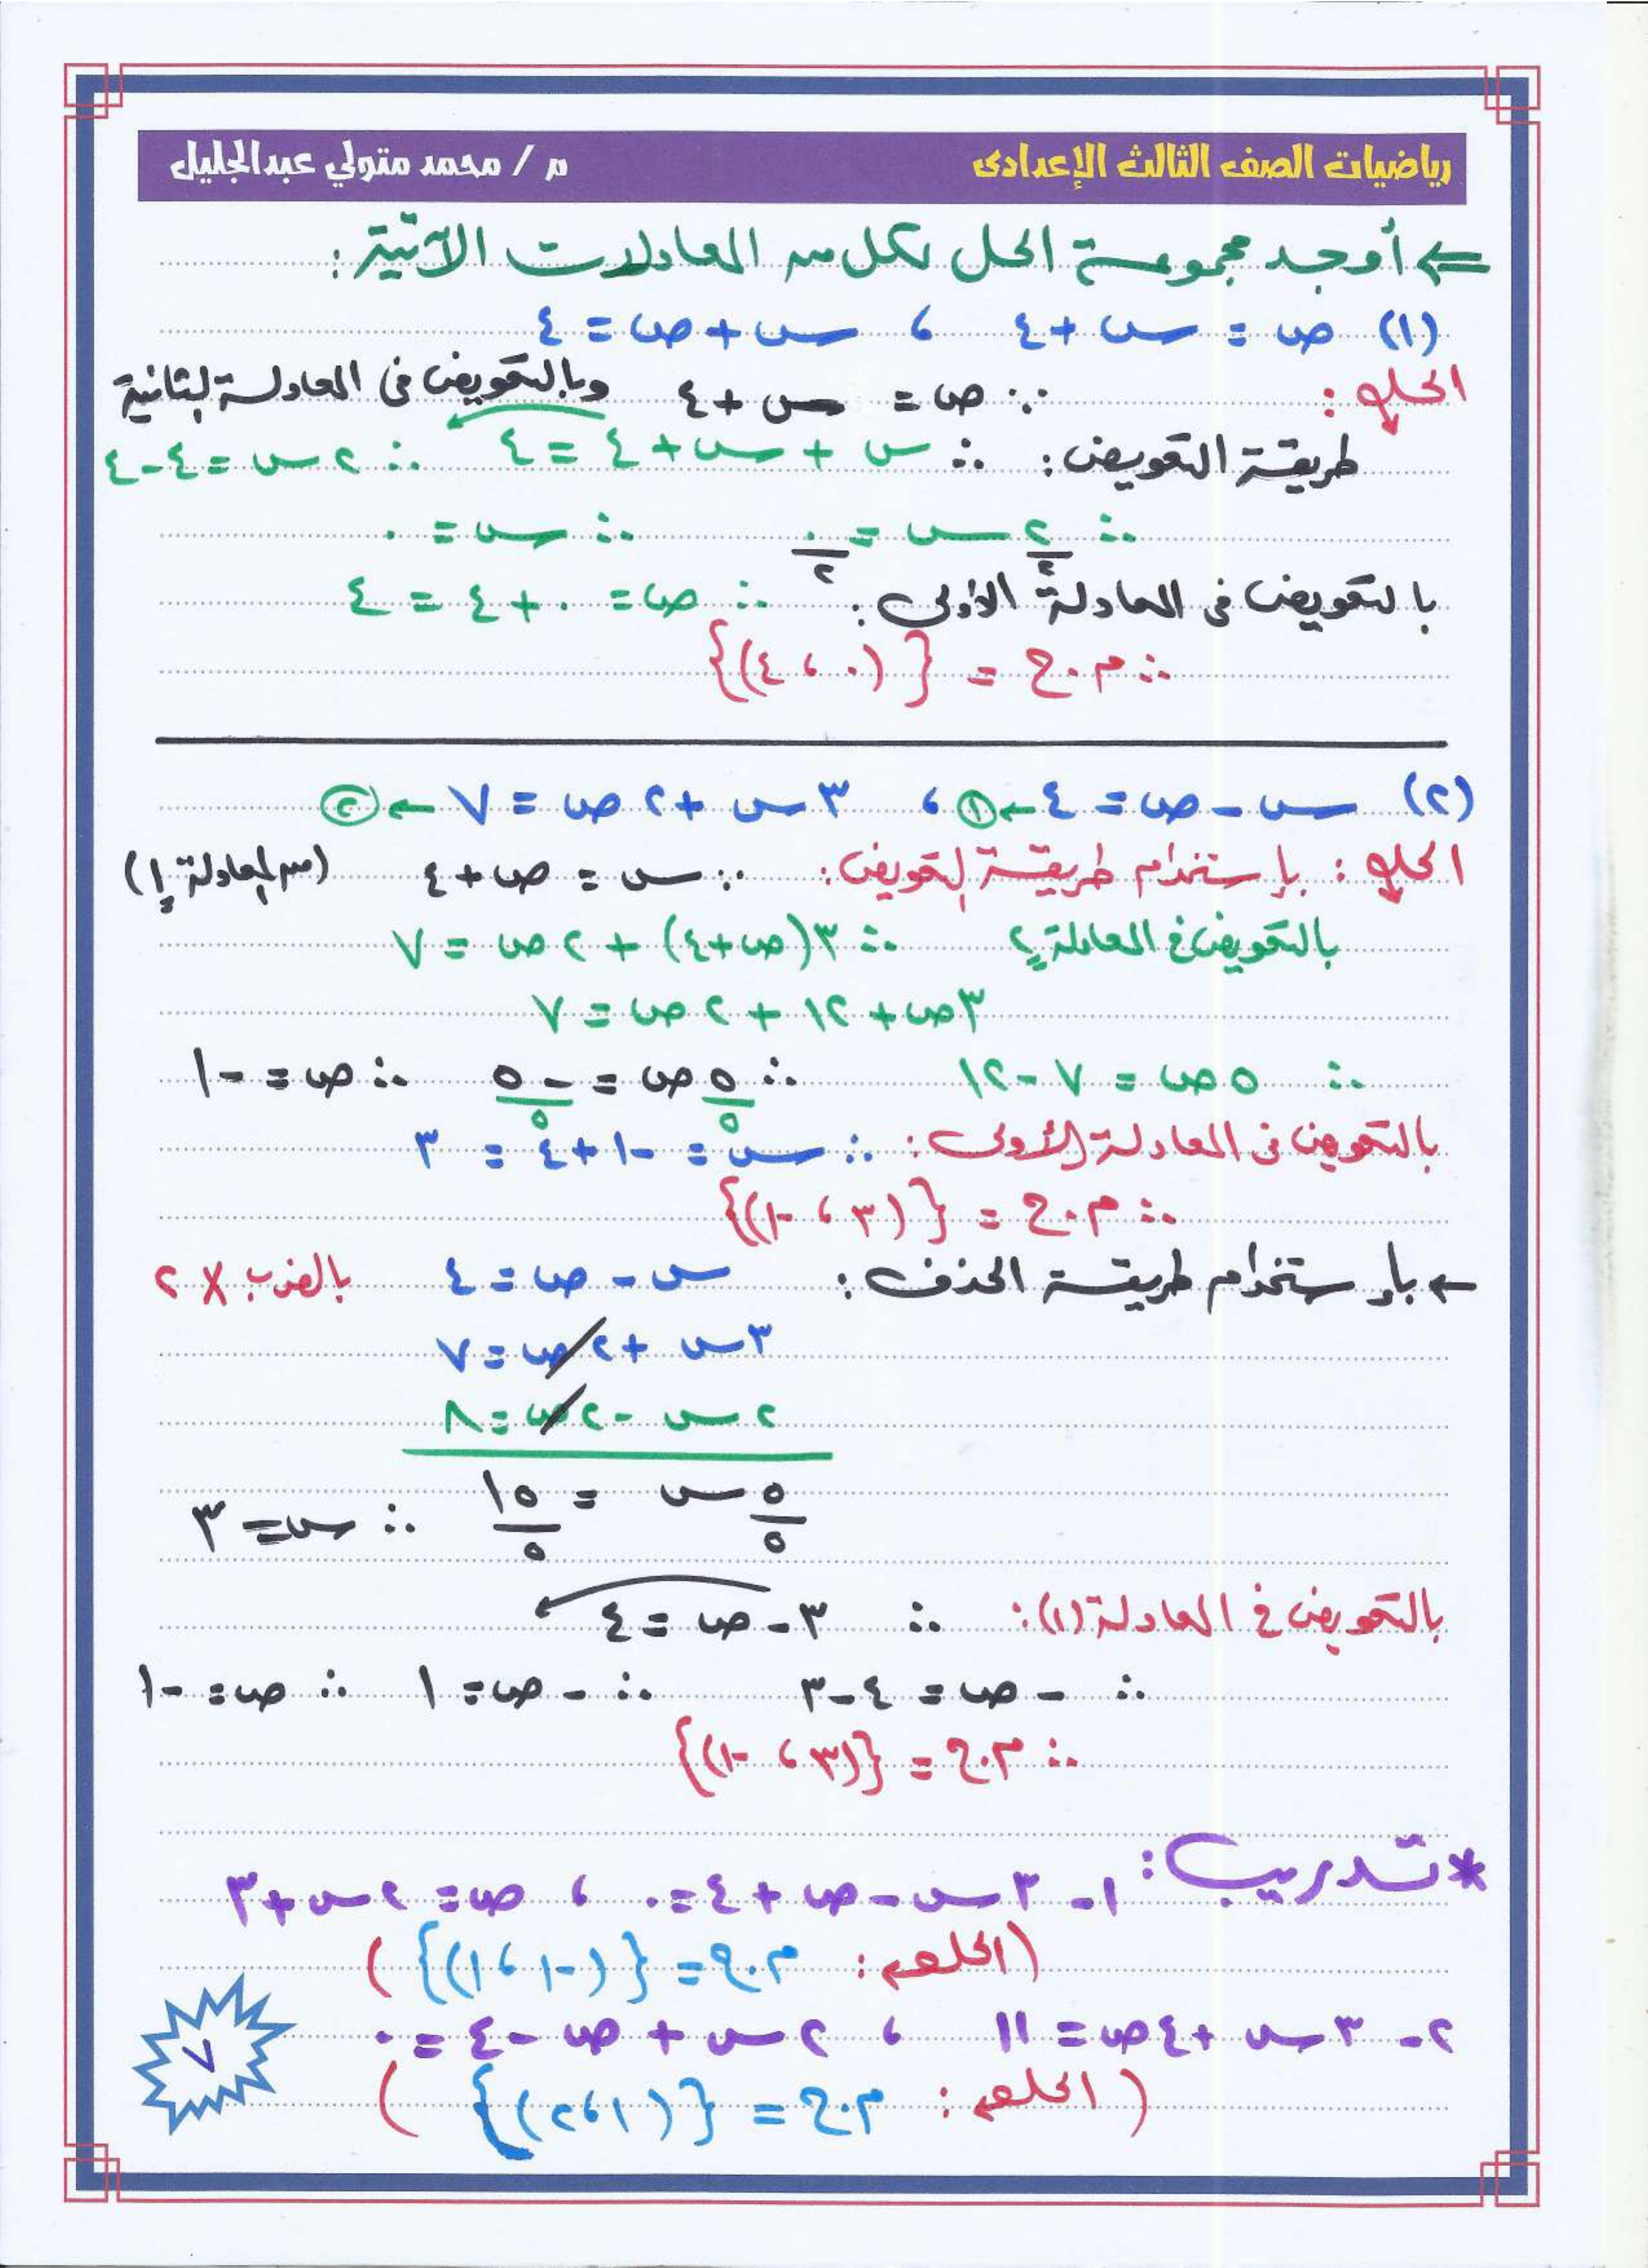 رياضيات الصف الثالث الإعدادى م / محمد متولي عبدالجليل
⇐ أوجد مجموعة الحل لكل من المعادلات الآتية :
(١) ص = س + ٤ ، س + ص = ٤
الحل : ∵ ص = س + ٤ وبالتعويض فى المعادلة الثانية
طريقة التعويض : ∴ س + س + ٤ = ٤ ∴ ٢س = ٤ - ٤
∴ ٢س/٢ = ٠/٢ ∴ س = ٠
بالتعويض فى المعادلة الأولى : ∴ ص = ٠ + ٤ = ٤
∴ م.ح = {(٠ ، ٤)}
(٢) س - ص = ٤ ← ① ، ٣س + ٢ص = ٧ ← ②
الحل : بإستخدام طريقة التعويض : ∵ س = ص + ٤ (من المعادلة ١)
بالتعويض فى المعادلة ٢ ∴ ٣(ص + ٤) + ٢ص = ٧
٣ص + ١٢ + ٢ص = ٧
∴ ٥ص = ٧ - ١٢ ∴ ٥ص/٥ = -٥/٥ ∴ ص = -١
بالتعويض فى المعادلة الأولى : ∴ س = -١ + ٤ = ٣
∴ م.ح = {(٣ ، -١)}
← بإستخدام طريقة الحذف : س - ص = ٤ بالضرب × ٢
٣س + ٢ص = ٧
٢س - ٢ص = ٨
٥س/٥ = ١٥/٥ ∴ س = ٣
بالتعويض فى المعادلة (١) : ∴ ٣ - ص = ٤
∴ - ص = ٤ - ٣ ∴ - ص = ١ ∴ ص = -١
∴ م.ح = {(٣ ، -١)}
* تدريب : ١- ٣س - ص + ٤ = ٠ ، ص = ٢س + ٣
(الحل : م.ح = {(-١ ، ١)})
٢- ٣س + ٤ص = ١١ ، ٢س + ص - ٤ = ٠
(الحل : م.ح = {(١ ، ٢)})
٧